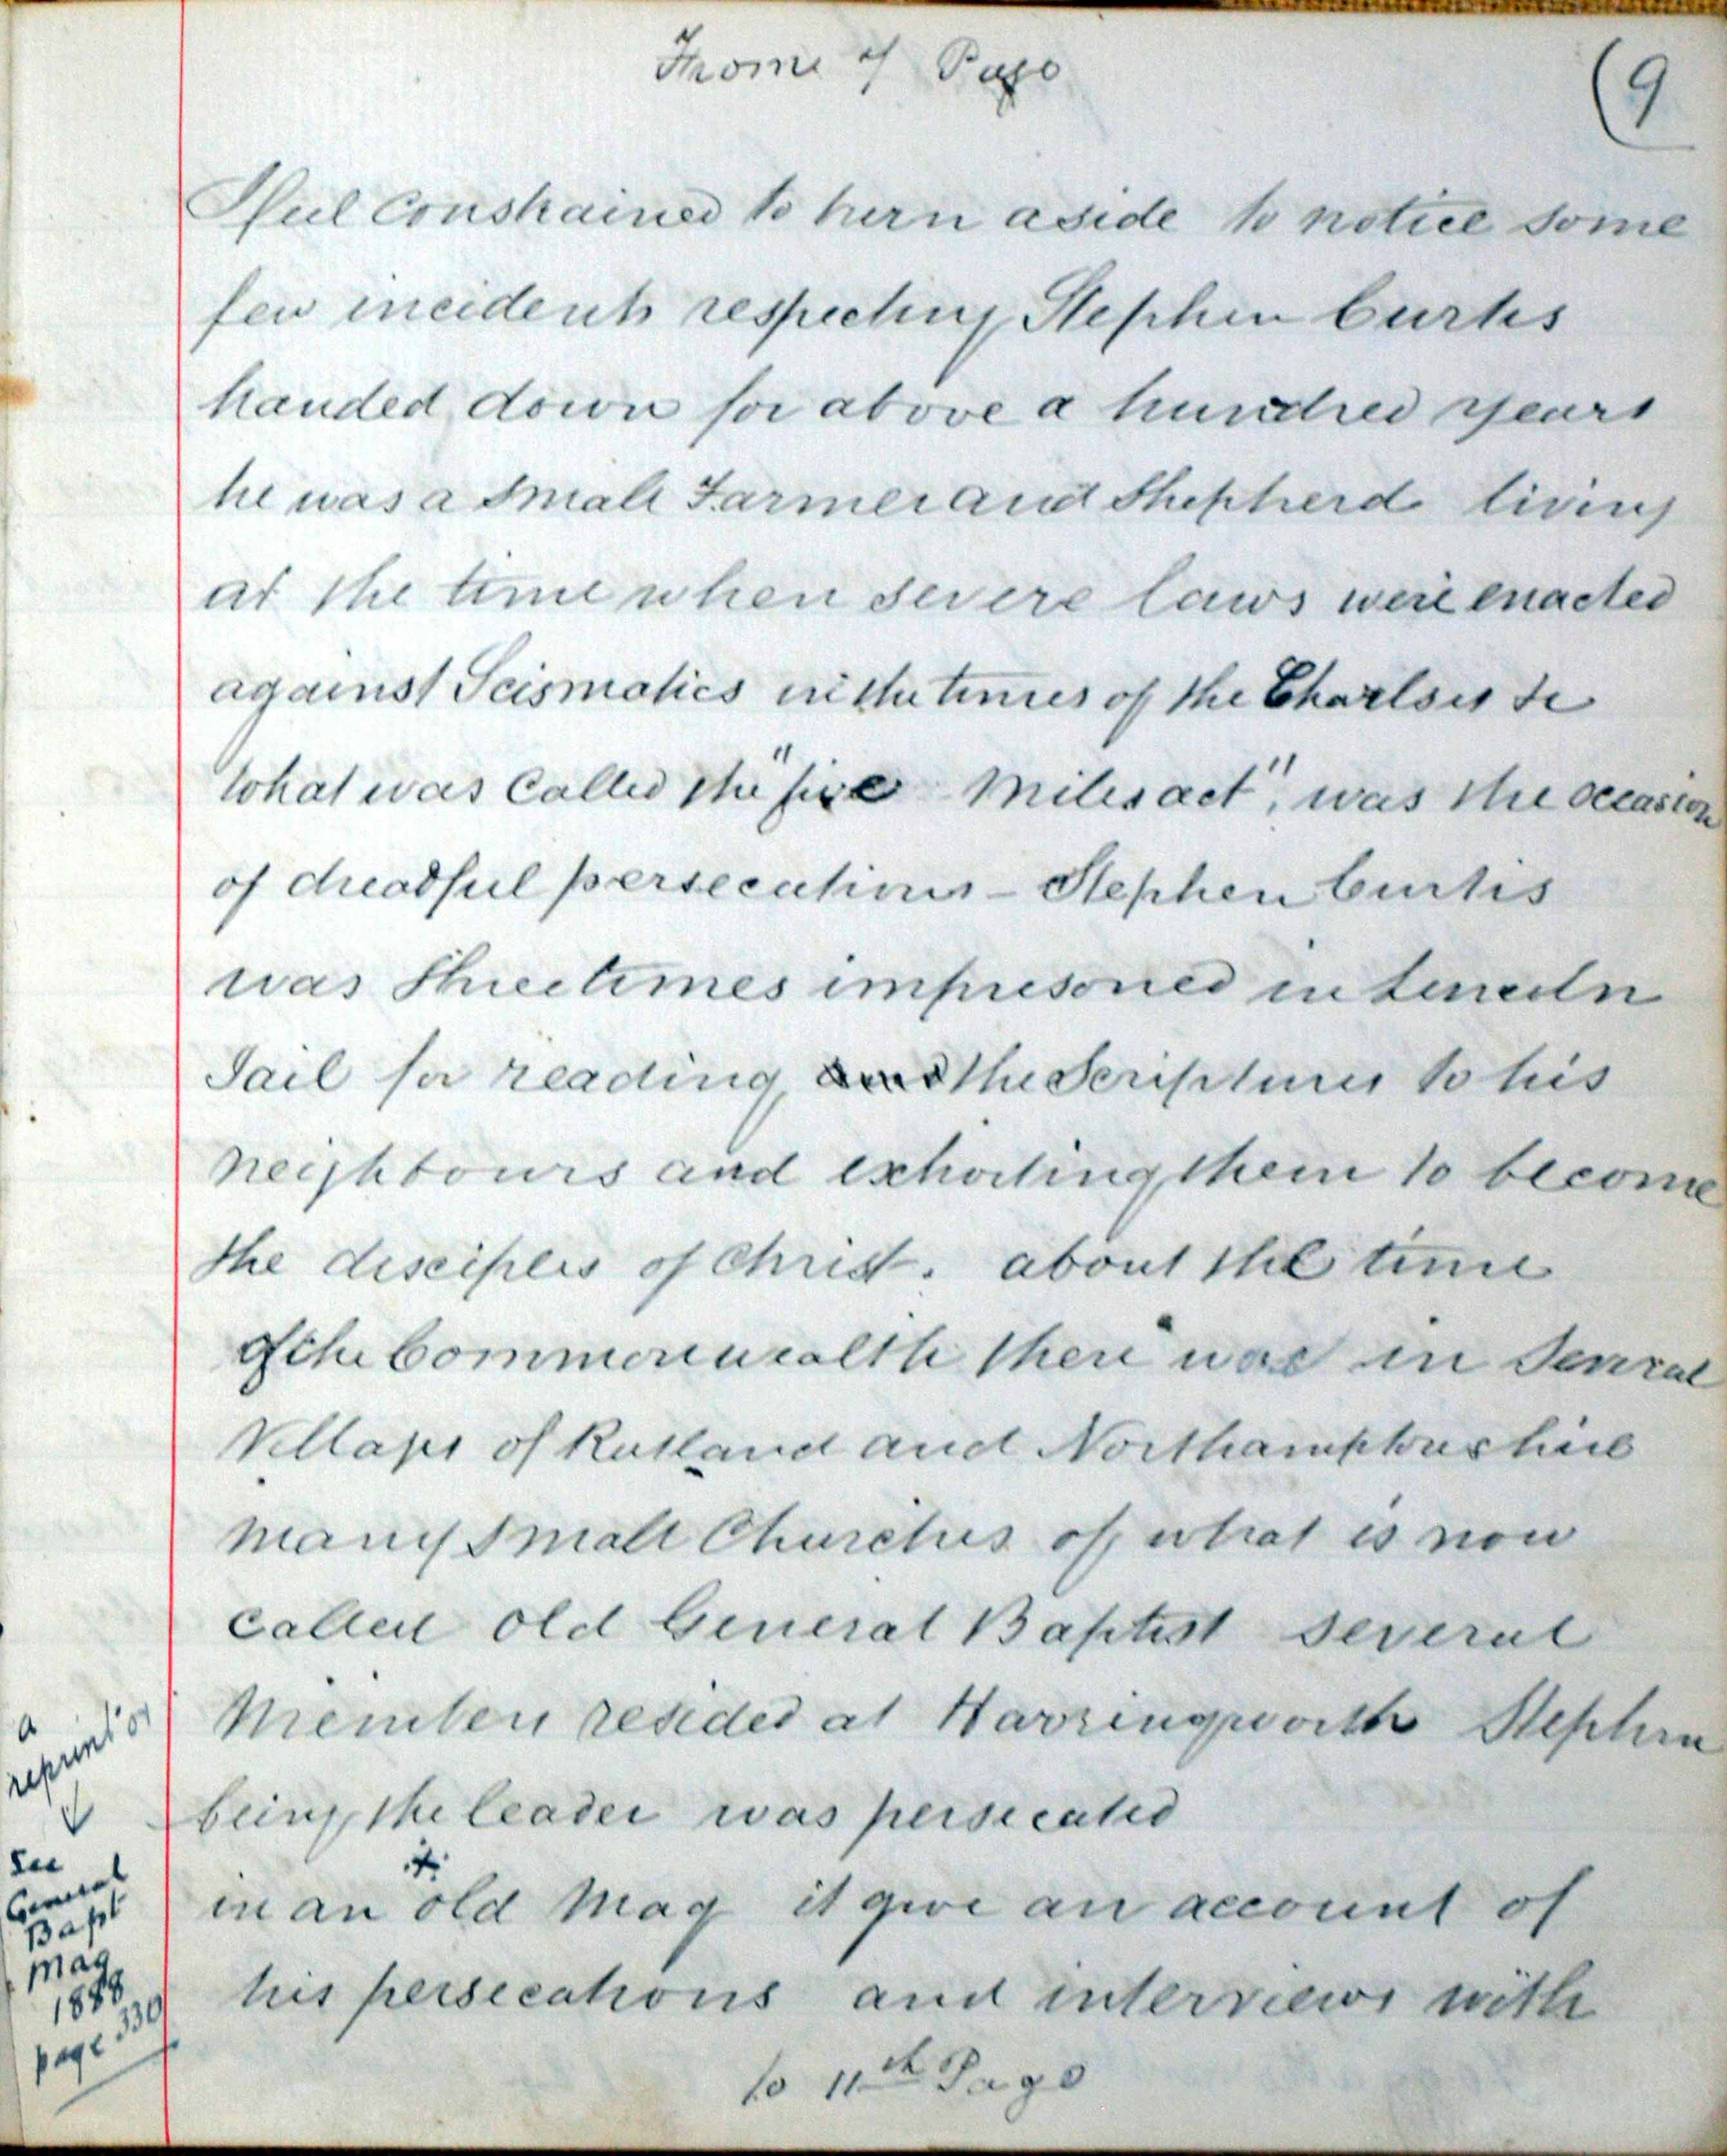 From 7 Page
(9
I feel Constrained to turn aside to notice some
few incidents respecting Stephen Curtis
handed down for above a hundred years
he was a small Farmer and Shepherd living
at the time when severe laws were enacted
against Scismatics in the times of the Charlses &c
What was Called the "five Miles act", was the occasion
of dreadful persecutions - Stephen Curtis
was three times imprisoned in Lincoln
Jail for reading the Scriptures to his
neighbours and exhorting them to become
the disciples of Christ. about the time
of the Commonwealth there was in Several
Villages of Rutland and Northamptonshire
many small Churches of what is now
called old General Baptist several
Members resided at Harringworth Stephen
being the leader was persecuted
in an old Mag it give an account of
his persecutions and interviews with
to 11th Page
a
reprint of
↓
See
General
Bapt
Mag
1888
page 330